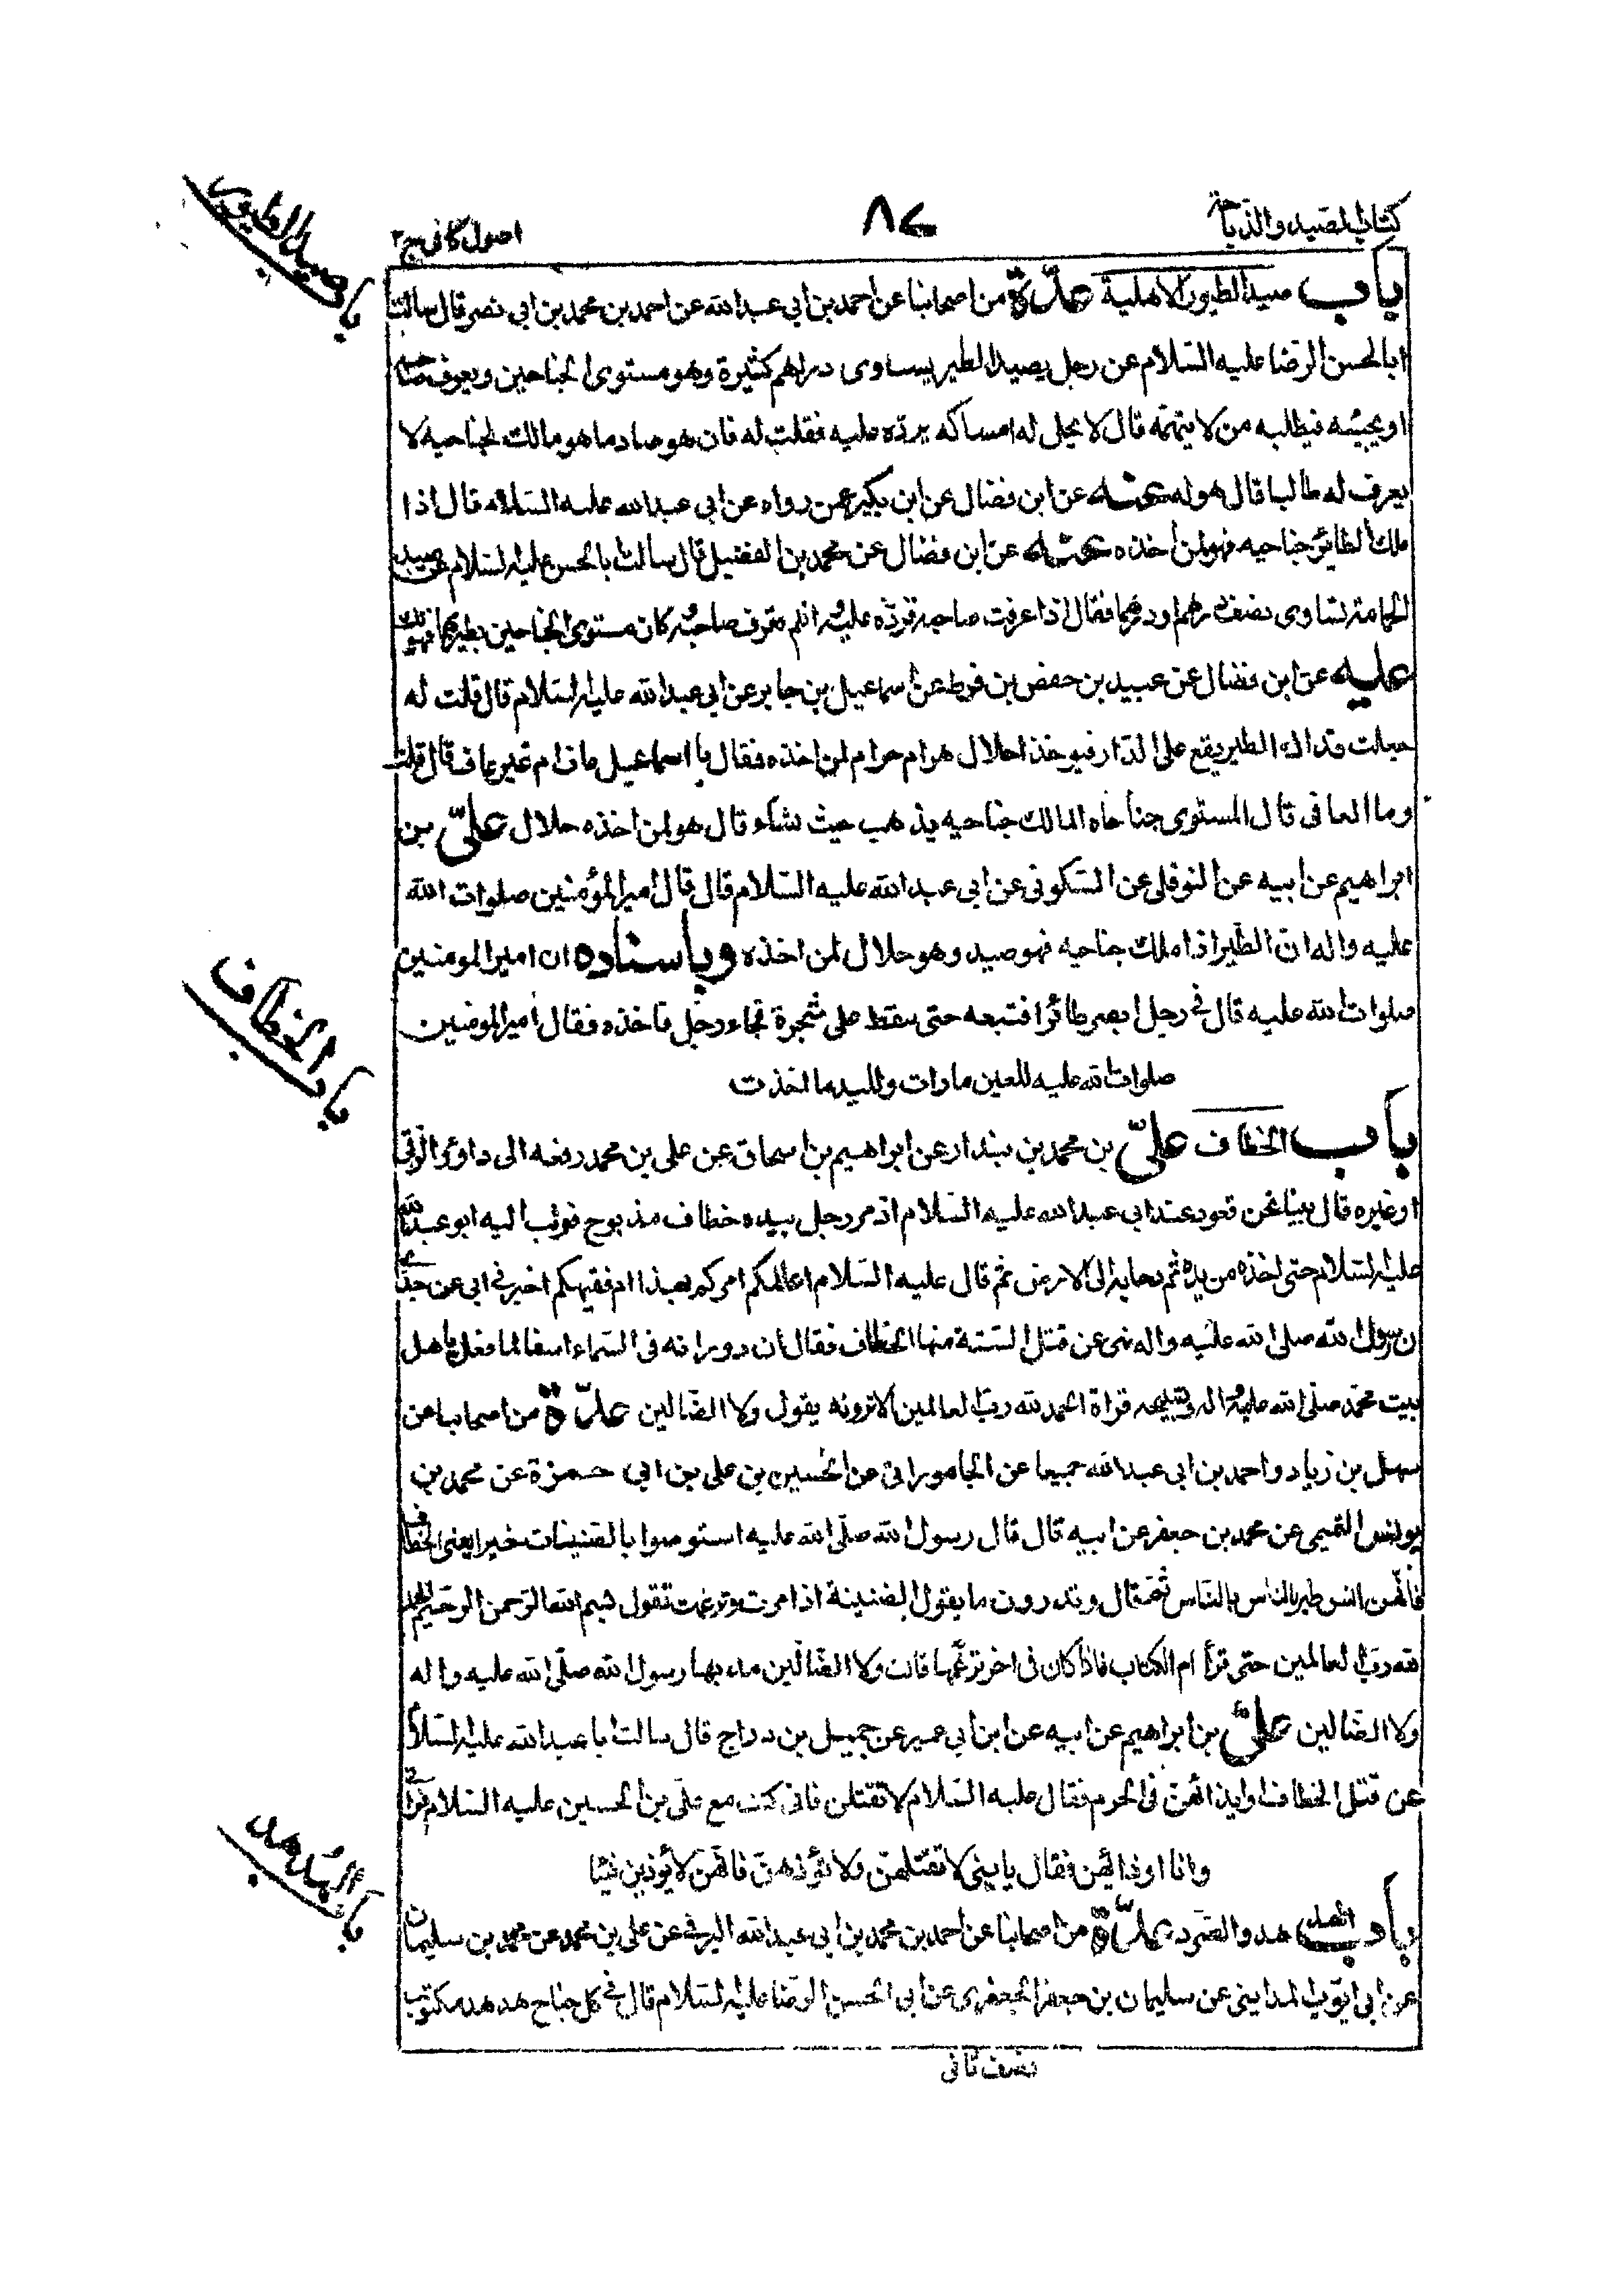 كتاب الصيد والذباحة
٨٤
اصول كافى ج٢
باب صيد الطيور
باب صيد الطيور الاهلية عدّة من اصحابنا عن احمد بن ابي عبد الله عن احمد بن محمد بن ابي نصر قال سالت
ابا الحسن الرضا عليه السلام عن رجل يصيد الطير يساوى دراهم كثيرة وهو مستوى الجناحين ويعرف صاحبه
او يجيئه فيطلبه من لا يتهمه قال لا يحل له امساكه يرده عليه فقلت له فان هو صاد ما هو مالك لجناحيه لا
يعرف له طالبا قال هو له عنه عن ابن فضال عن ابن بكير عمن رواه عن ابي عبد الله عليه السلام قال اذا
ملك الطائر جناحيه فهو لمن اخذه عنه عن ابن فضال عن محمد بن الفضيل قال سالت ابا الحسن عليه السلام عن صيد
الحمامة تساوى نصف درهم او درهما فقال اذا عرفت صاحبه فرده عليه وان لم تعرف صاحبه وكان مستوى الجناحين يطير بهما فهو لك
عليه عن ابن فضال عن عبيد بن حفص بن قرط عن اسماعيل بن جابر عن ابي عبد الله عليه السلام قال قلت له
جعلت فداك الطير يقع على الدار فيوخذ احلال هو ام حرام لمن اخذه فقال يا اسماعيل عاف ام غير عاف قال قلت
وما العافى قال المستوى جناحاه المالك جناحيه يذهب حيث شاء قال هو لمن اخذه حلال علىّ بن
ابراهيم عن ابيه عن النوفلى عن السكونى عن ابى عبد الله عليه السلام قال قال امير المؤمنين صلوات الله
عليه واله ان الطير اذا ملك جناحيه فهو صيد وهو حلال لمن اخذه وباسناده ان امير المومنين
صلوات الله عليه قال فى رجل ابصر طائرا فتبعه حتى سقط على شجرة فجاء رجل فاخذه فقال امير المومنين
صلوات الله عليه للعين ما رات ولليد ما اخذت
باب الخطاف
باب الخطاف علىّ بن محمد بن بندار عن ابراهيم بن اسحاق عن على بن محمد رفعه الى داؤد الرقى
او غيره قال بينا نحن قعود عند ابى عبد الله عليه السلام اذ مر رجل بيده خطاف مذبوح فوثب اليه ابو عبد الله
عليه السلام حتى اخذه من يده ثم دحا به الى الارض ثم قال عليه السلام اعالمكم امركم بهذا ام فقيهكم اخبرنى ابى عن جدى
ان رسول الله صلى الله عليه واله نهى عن قتل الستة منها الخطاف فقال ان دورانه فى السماء اسفا لما فعل باهل
بيت محمد صلى الله عليه واله وتسبيحه قراة الحمد لله رب العالمين الا ترونه يقول ولا الضالين عدّة من اصحابنا عن
سهل بن زياد واحمد بن ابى عبد الله جميعا عن الجامورانى عن الحسين بن على بن ابى حمزة عن محمد بن
يونس التميمى عن محمد بن جعفر عن ابيه قال قال رسول الله صلى الله عليه استوصوا بالصنينات خيرا يعنى الخطاف
فانهن انس طير الناس بالناس ثم قال وتدرون ما يقول الصنينة اذا مرت وترنمت تقول بسم الله الرحمن الرحيم الحمد
لله رب العالمين حتى تقرا ام الكتاب فاذا كان فى اخر ترنمها قالت ولا الضالين مد بها رسول الله صلى الله عليه واله
ولا الضالين علىّ بن ابراهيم عن ابيه عن ابن ابي عمير عن جميل بن دراج قال سالت ابا عبد الله عليه السلام
عن قتل الخطاف او ايذائهن فى الحرم فقال عليه السلام لا تقتلن فانى كنت مع على بن الحسين عليه السلام فرانى
وانا اوذيهن فقال يا بنى لا تقتلهن ولا تؤذهن فانهن لا يوذين شيئا
باب الهدهد
باب الهدهد والصرد عدّة من اصحابنا عن احمد بن محمد بن ابى عبد الله البرقى عن على بن محمد عن محمد بن سليمان
عن ابى ايوب المداينى عن سليمان بن جعفر الجعفرى عن ابى الحسن الرضا عليه السلام قال فى كل جناح هدهد مكتوب
نصف ثانى